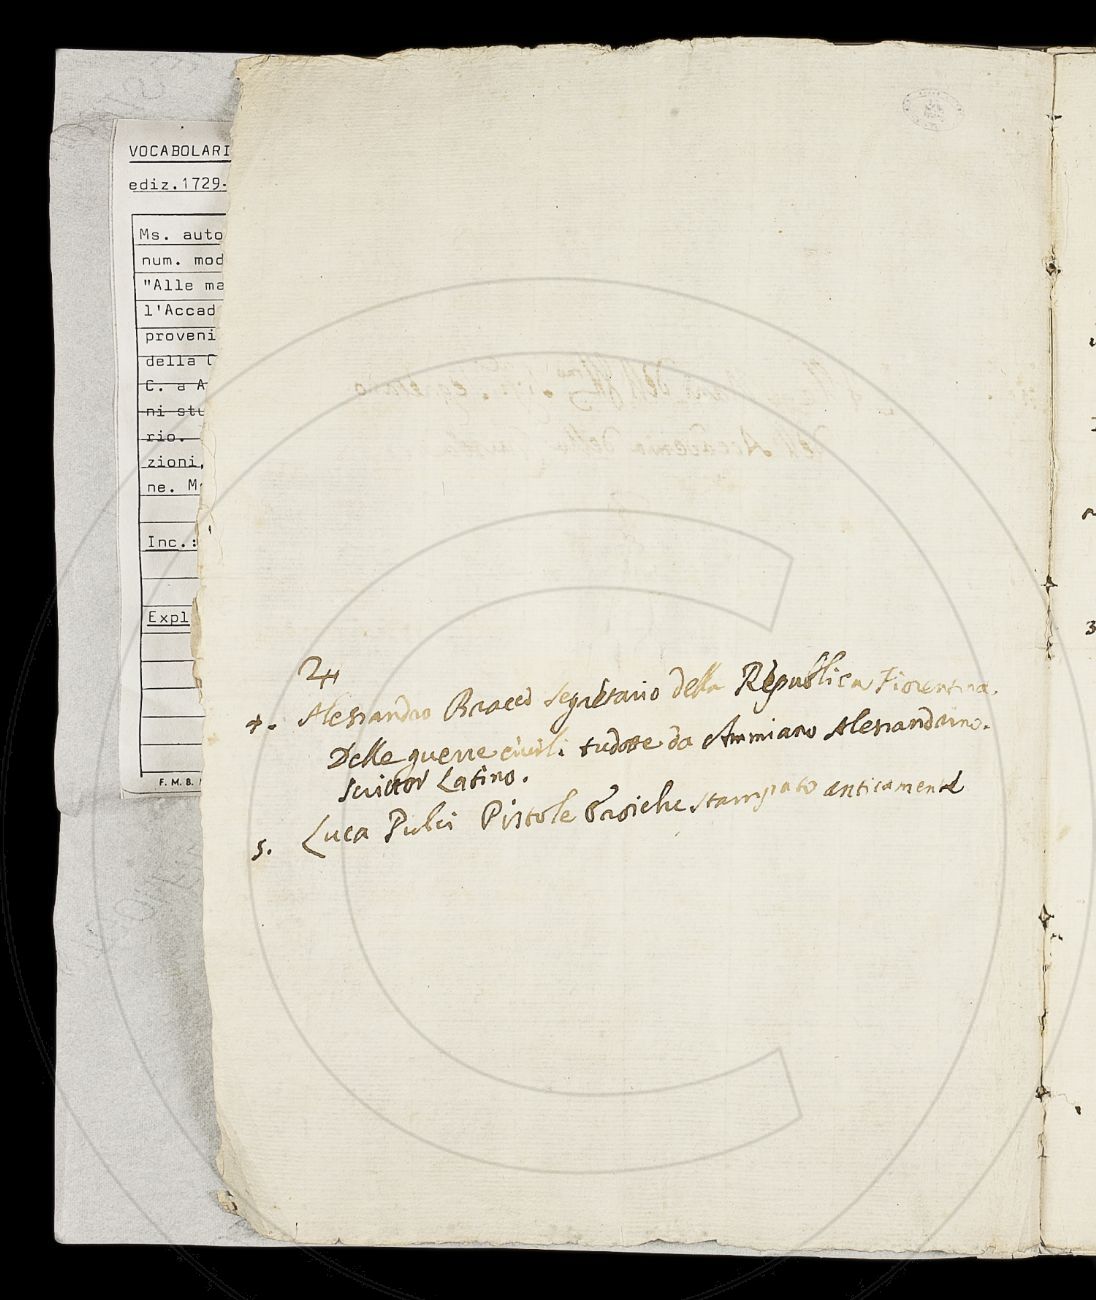 VOCABOLARI
ediz.1729-
Ms. auto
num. mod
"Alle ma
l'Accad
proveni
della C
C. a A
ni stu
rio.
zioni,
ne. M
Inc.:
Expl
F. M. B.
24
4. Alessandro Bracci Segretario della Republica Fiorentina.
Delle guerre civili tradotte da Ammiano Alessandrino.
scrittor Latino.
5. Luca Pulci Pistole Eroiche stampato anticamente